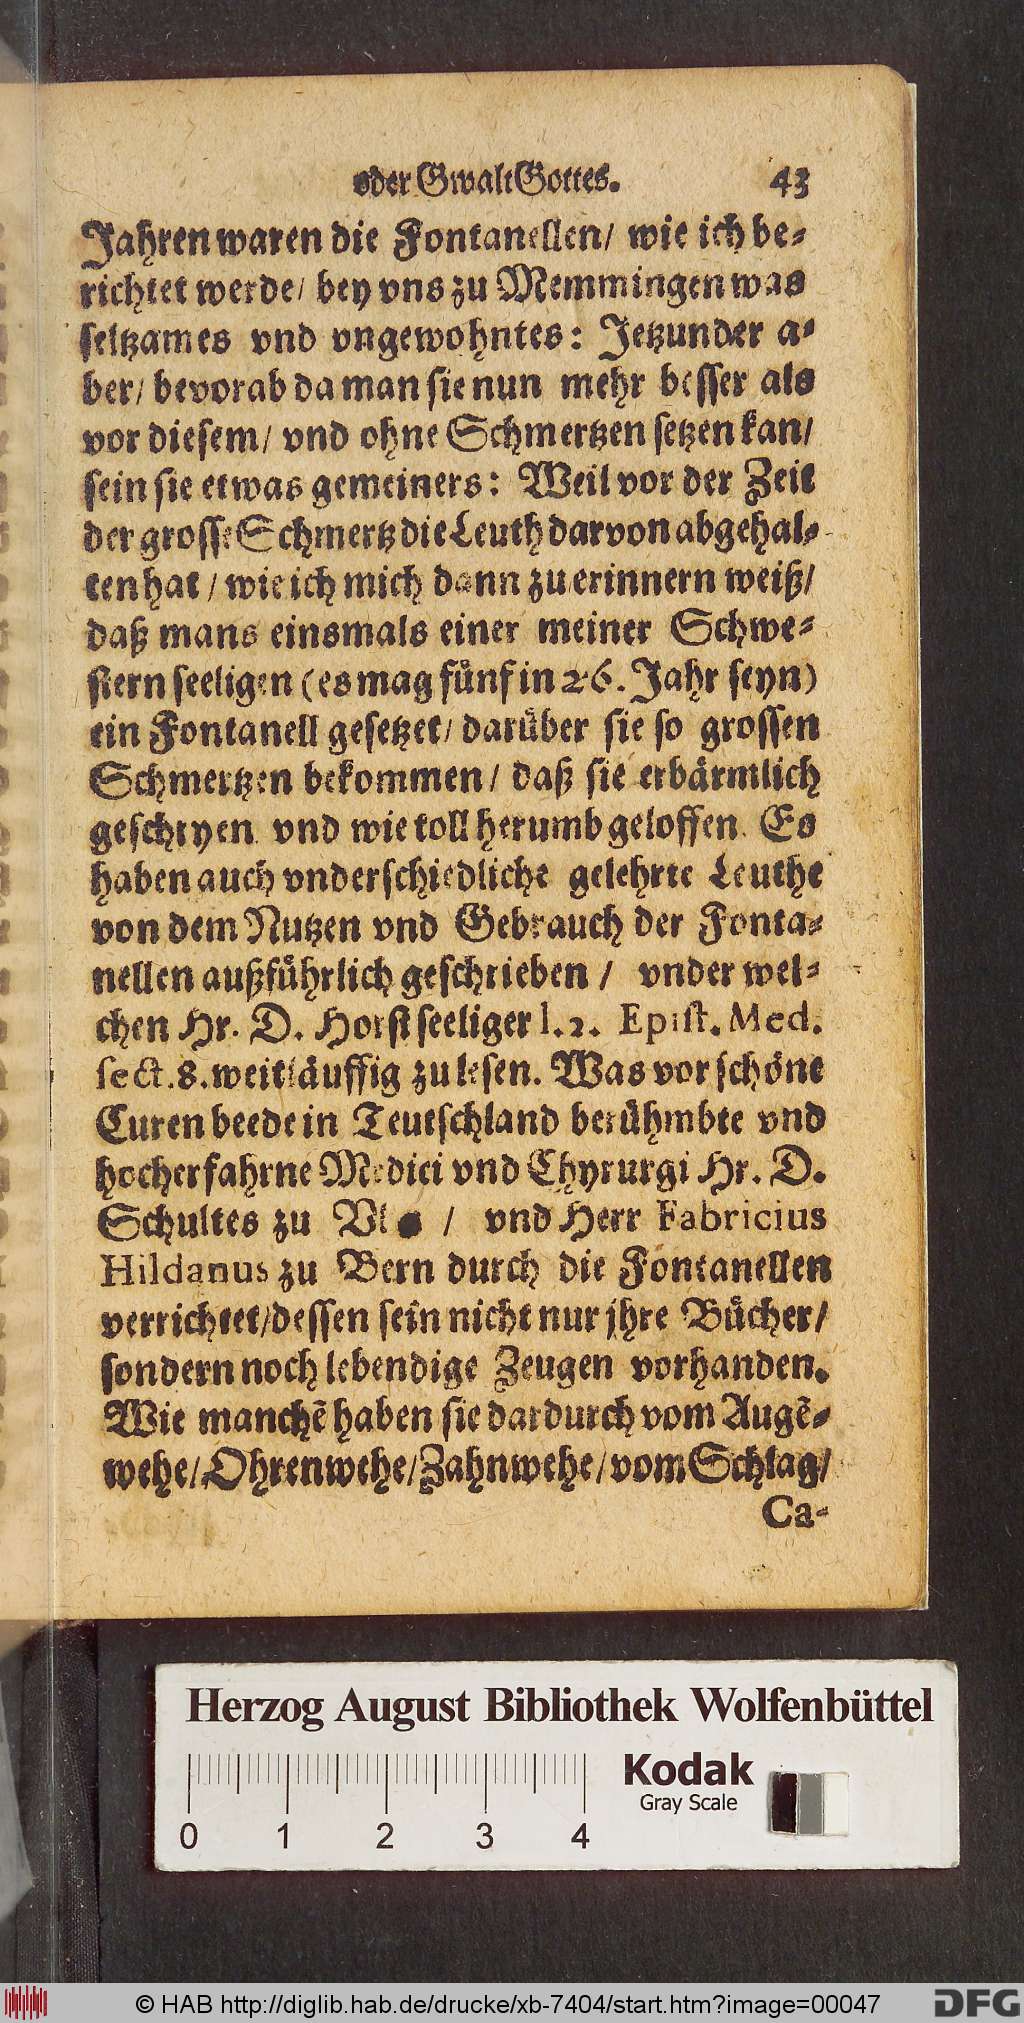 oder Gwalt Gottes. 43
Jahren waren die Fontanellen/ wie ich be-
richtet werde/ bey vns zu Memmingen was
seltzames vnd vngewohntes: Jetzunder a-
ber/ bevorab da man sie nun mehr besser als
vor diesem/ vnd ohne Schmertzen setzen kan/
sein sie etwas gemeiners: Weil vor der Zeit
der grosse Schmertz die Leuth darvon abgehal-
ten hat / wie ich mich dann zu erinnern weiß/
daß mans einsmals einer meiner Schwe-
stern seeligen (es mag fünf in 26. Jahr seyn)
ein Fontanell gesetzet/ darüber sie so grossen
Schmertzen bekommen/ daß sie erbärmlich
geschryen vnd wie toll herumb geloffen. Es
haben auch vnderschiedliche gelehrte Leuthe
von dem Nutzen vnd Gebrauch der Fonta-
nellen außführlich geschrieben / vnder wel-
chen Hr. D. Horst seeliger l. 2. Epist. Med.
sect. 8. weitläuffig zu lesen. Was vor schöne
Curen beede in Teutschland berühmbte vnd
hocherfahrne Medici vnd Chyrurgi Hr. D.
Schultes zu / vnd Herr Fabricius
Hildanus zu Bern durch die Fontanellen
verrichtet/ dessen sein nicht nur jhre Bücher/
sondern noch lebendige Zeugen vorhanden.
Wie manchē haben sie dardurch vom Augē-
wehe/ Ohrenwehe/ Zahnwehe/ vom Schlag/
Ca-
Herzog August Bibliothek Wolfenbüttel
Kodak
Gray Scale
0 1 2 3 4
© HAB http://diglib.hab.de/drucke/xb-7404/start.htm?image=00047
DFG